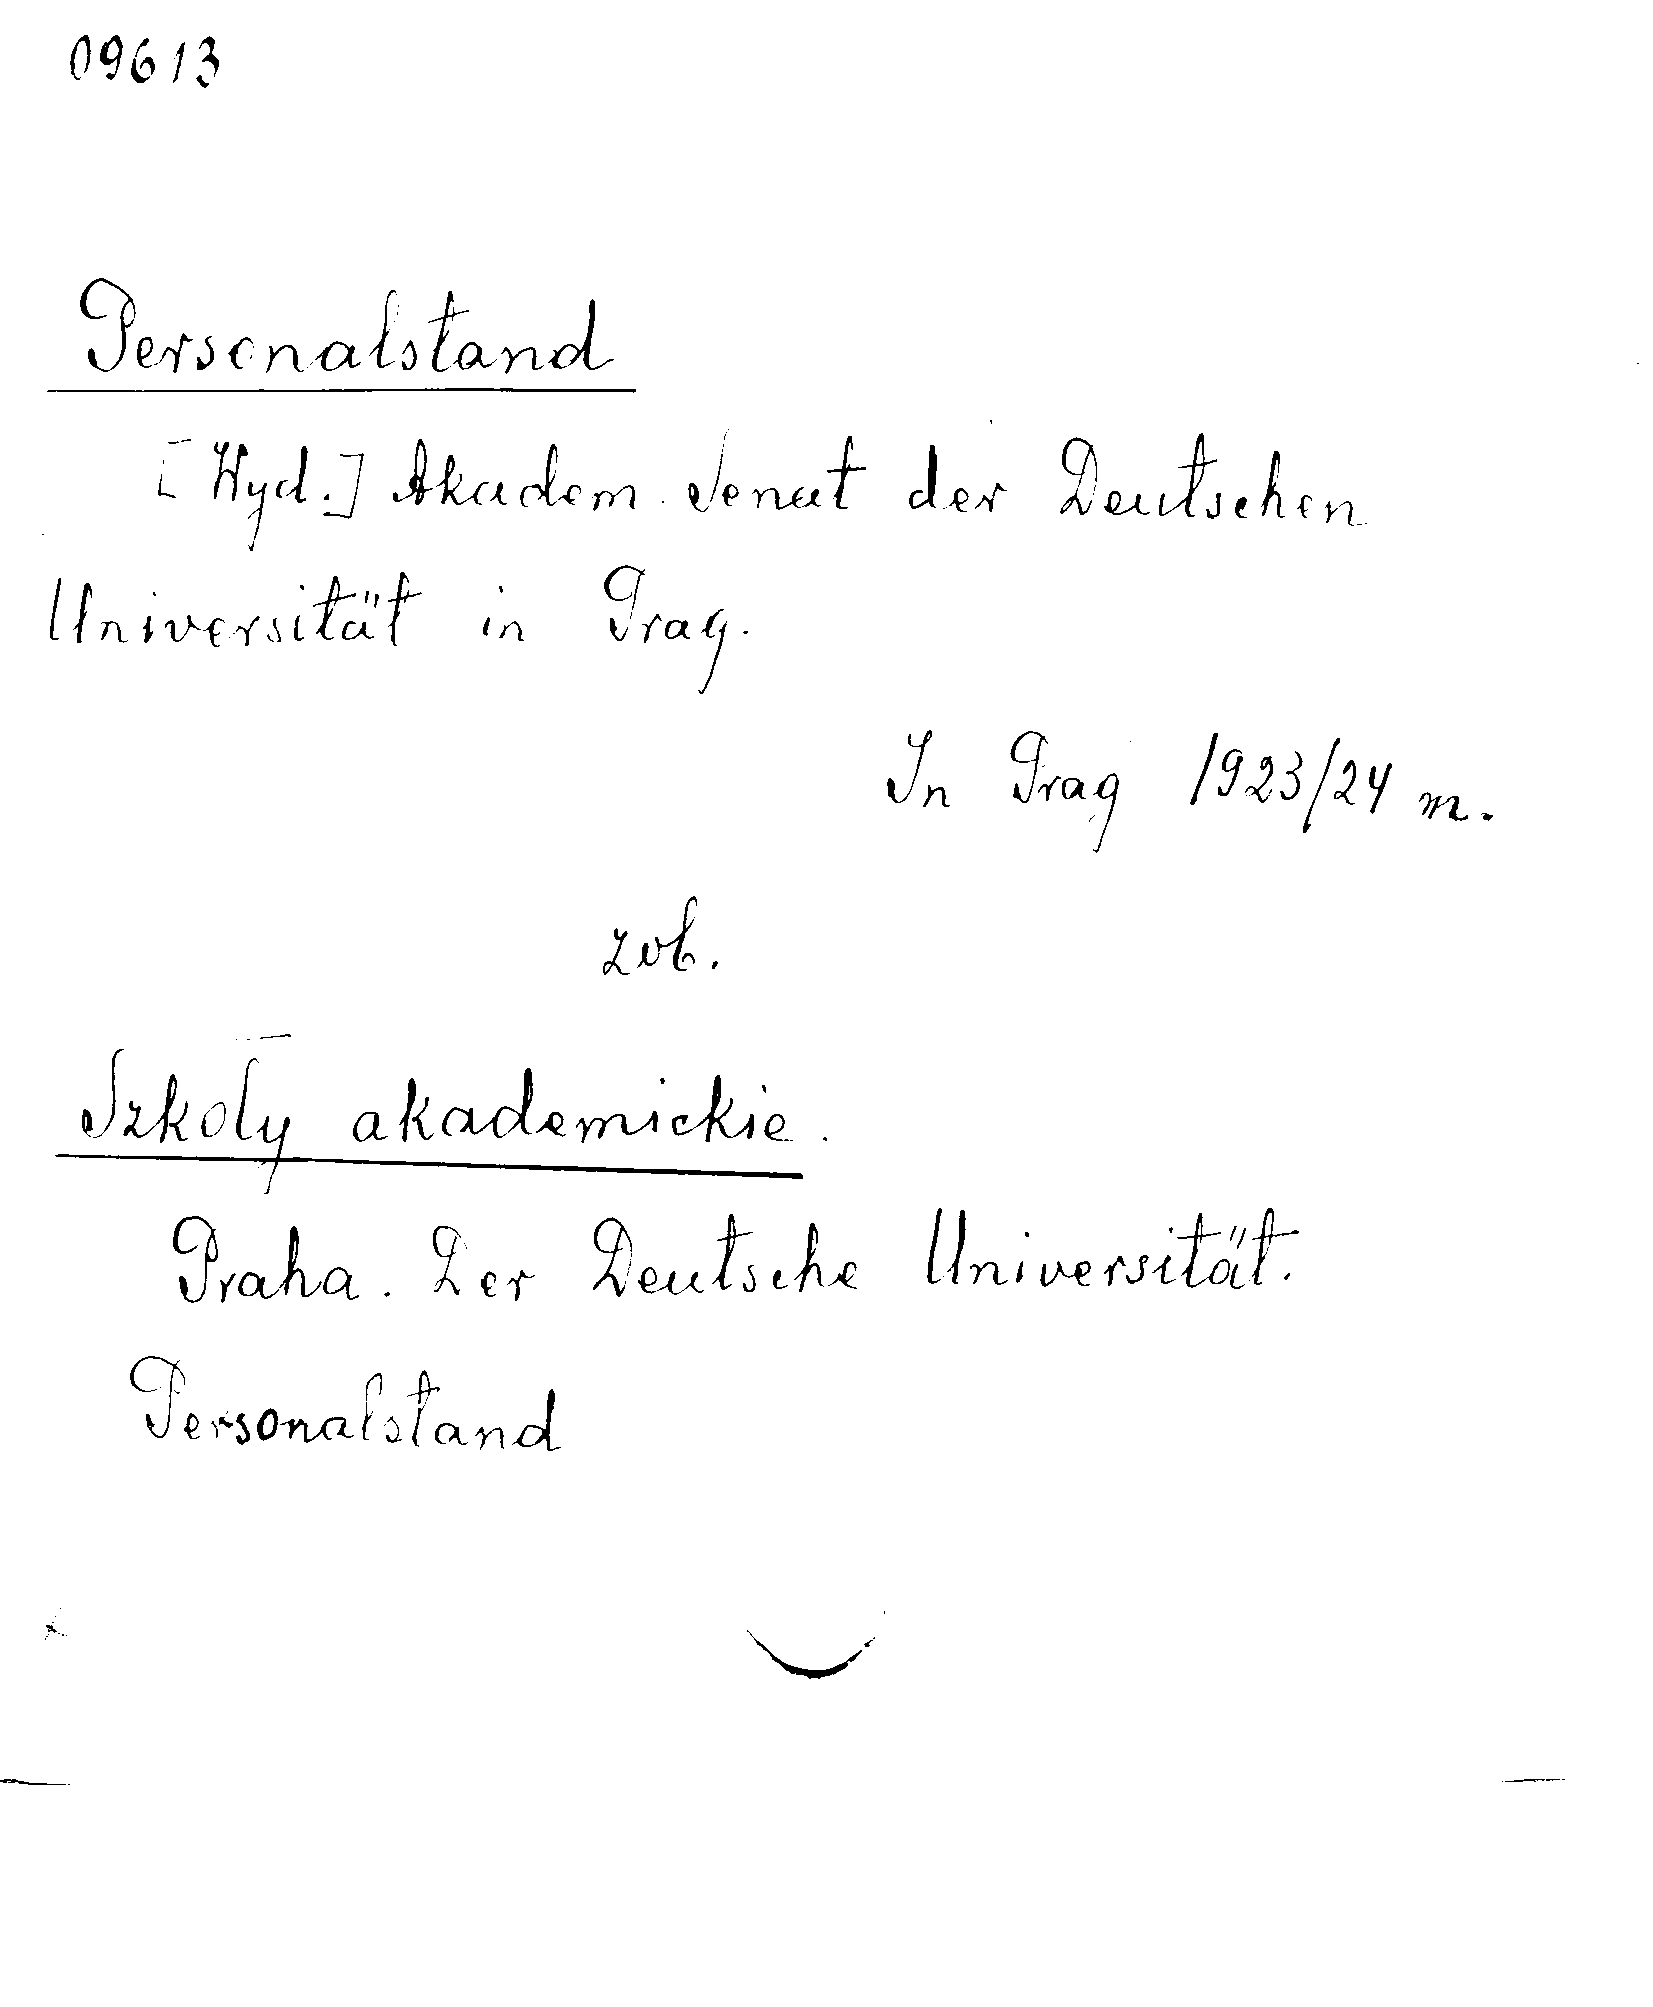 09613
Personalstand
[Wyd.] Akadem. Senat der Deutschen
Universität in Prag.
In Prag 1923/24 m.
zob.
Szkoły akademickie.
Praha. Der Deutsche Universität.
Personalstand